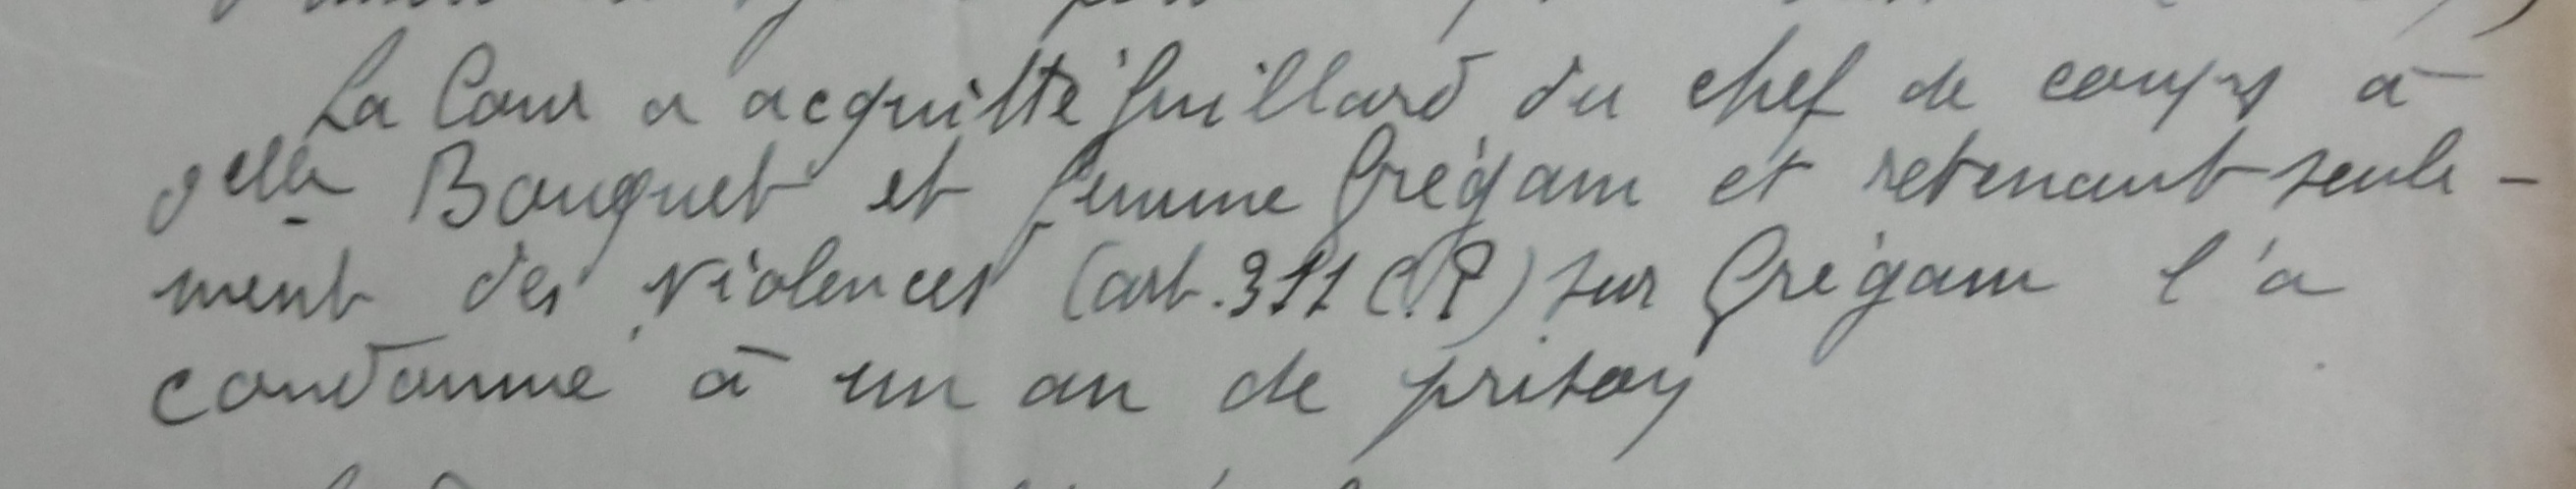 La Cour a acquitté Juillard du chef de coups à
Delle Bouquet et femme Grégam et retenant seule-
ment des violences (art. 311 C.P) sur Grégam l'a
condamné à un an de prison